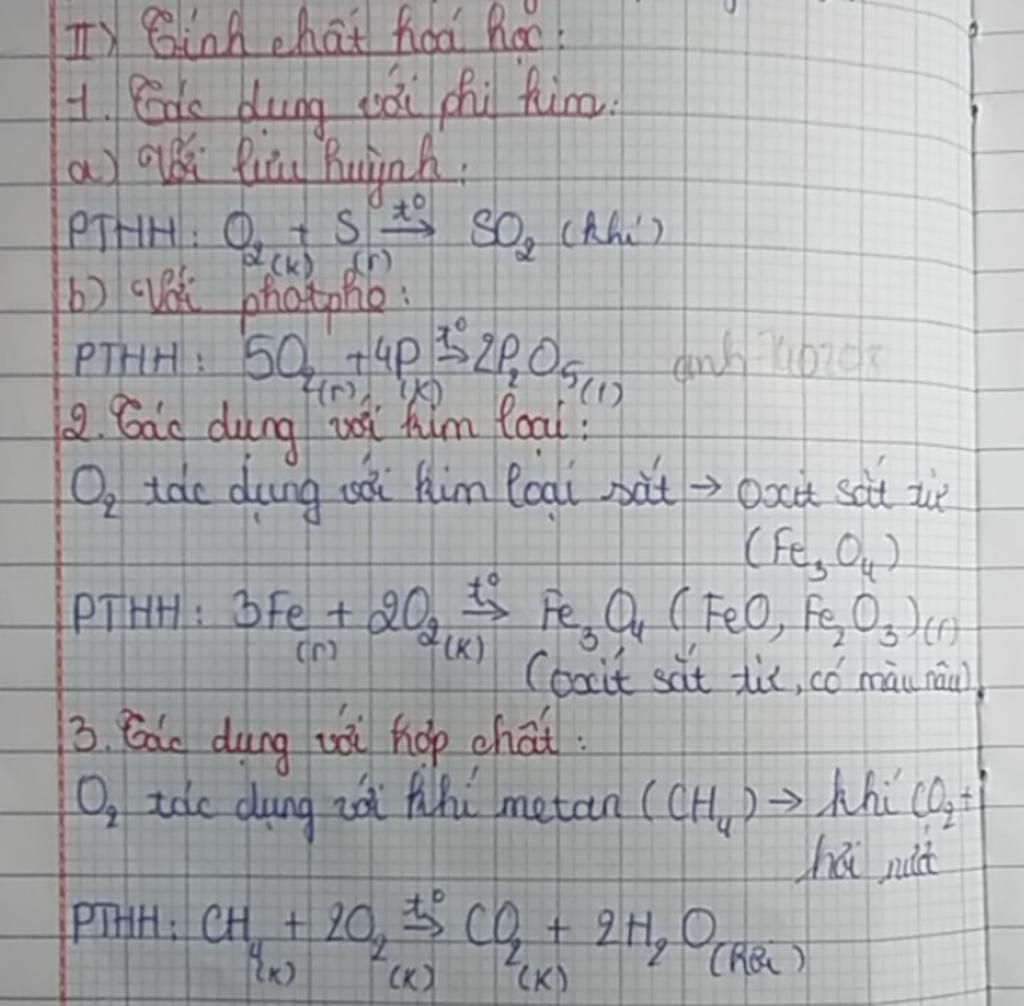 II) Tính chất hoá học:
1. Tác dụng với phi kim:
a) Với lưu huỳnh:
PTHH: O₂(k) + S(r) t°→ SO₂ (khí)
b) Với photpho:
PTHH: 5O₂(r) + 4P(k) t°→ 2P₂O₅(r)
2. Tác dụng với kim loại:
O₂ tác dụng với kim loại sắt → oxit sắt từ
(Fe₃O₄)
PTHH: 3Fe(r) + 2O₂(k) t°→ Fe₃O₄ (FeO, Fe₂O₃)(r)
(oxit sắt từ, có màu nâu)
3. Tác dụng với hợp chất:
O₂ tác dụng với khí metan (CH₄) → khí CO₂ +
hơi nước
PTHH: CH₄(k) + 2O₂(k) t°→ CO₂(k) + 2H₂O(hơi)